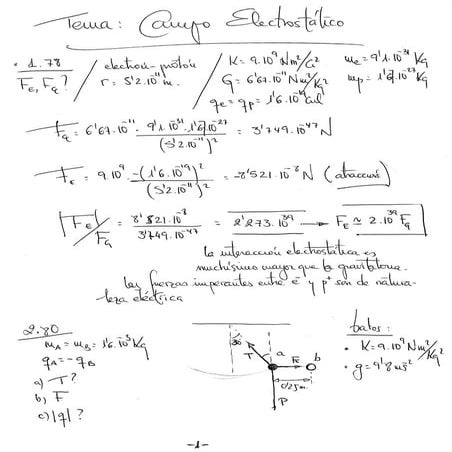 Tema: Campo Electrostático
• 1.78
F_E, F_g?
electrón-protón
r = 5'2.10^-11 m.
K = 9.10^9 Nm²/C²
G = 6'67.10^-11 Nm²/Kg²
q_e = q_p = 1'6.10^-19 Cul
m_e = 9'1.10^-31 Kg
m_p = 1'67.10^-27 Kg
F_g = 6'67.10^-11 . 9'1.10^-31 . 1'67.10^-27 / (5'2.10^-11)² = 3'749.10^-47 N
F_E = 9.10^9 . -(1'6.10^-19)² / (5'2.10^-11)² = -8'521.10^-8 N (atracción)
|F_E|/F_g = 8'521.10^-8 / 3'749.10^-47 = 2'273.10^39 → F_E ≃ 2.10^39 F_g
la interacción electrostática es
muchísimo mayor que la gravitatoria.
Las fuerzas imperantes entre e⁻ y p⁺ son de natura-
leza eléctrica
2.80
m_A = m_B = 1'6.10^-3 Kg
q_A = -q_B
a) T?
b) F
c) |q|?
30
T
a
F_E
b
0'25m.
P
Datos:
• K = 9.10^9 Nm²/Kg²
• g = 9'8 ms^-2
-1-